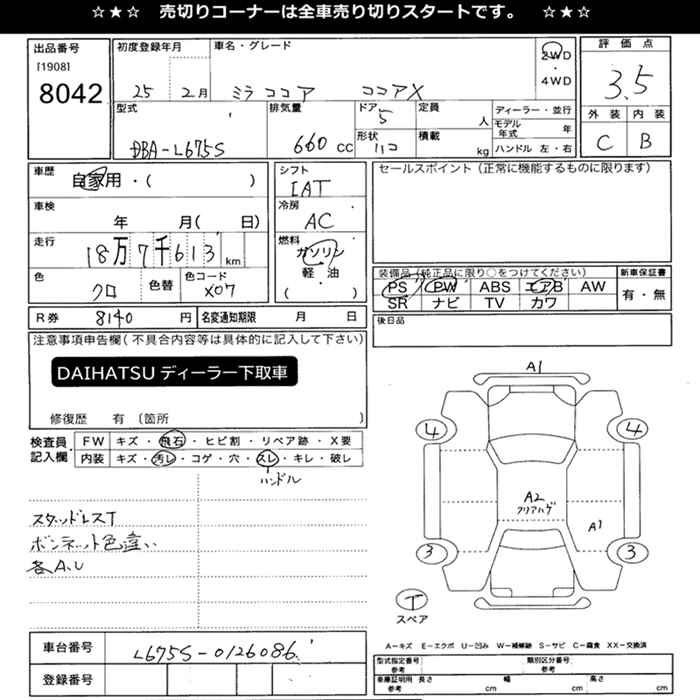 ☆★☆ 売切りコーナーは全車売り切りスタートです。 ☆★☆
出品番号
[1908]
8042
初度登録年月
25 2月
車名・グレード
ミラ ココア ココアX
2WD
・
4WD
評価点
3.5
外装 内装
C B
型式
DBA-L675S
排気量
660 cc
ドア
5
形状
定員
人
積載
kg
ディーラー・並行
モデル年式 年
ハンドル 左・右
車歴
自家用・( )
車検
年 月( 日)
走行
18万7千613 km
色
クロ
色替
色コード
X07
シフト
IAT
冷房
AC
燃料
ガソリン
・
軽・油
( )
セールスポイント(正常に機能するものに限ります)
装備品(純正品に限り○をつけてください)
PS PW ABS エアB AW
SR ナビ TV カワ
新車保証書
有・無
後日品
R券 8140 円 名変通知期限 月 日
注意事項申告欄(不具合内容等は具体的に記入して下さい)
DAIHATSU ディーラー下取車
修復歴 有 〔箇所 〕
検査員記入欄
FW キズ・飛石・ヒビ割・リペア跡・X要
内装 キズ・汚レ・コゲ・穴・スレ・キレ・破レ
ハンドル
スタッドレスT
ボンネット色違い
各A.U
A1
4 4
A2
クリアハゲ
A1
3 3
T
スペア
A-キズ E-エクボ U-凹み W-補修跡 S-サビ C-腐食 XX-交換済
車台番号
L675S-0126086
登録番号
型式指定番号
参考
類別区分番号
参考
車庫証明用
参考
長さ cm
幅 cm
高さ cm